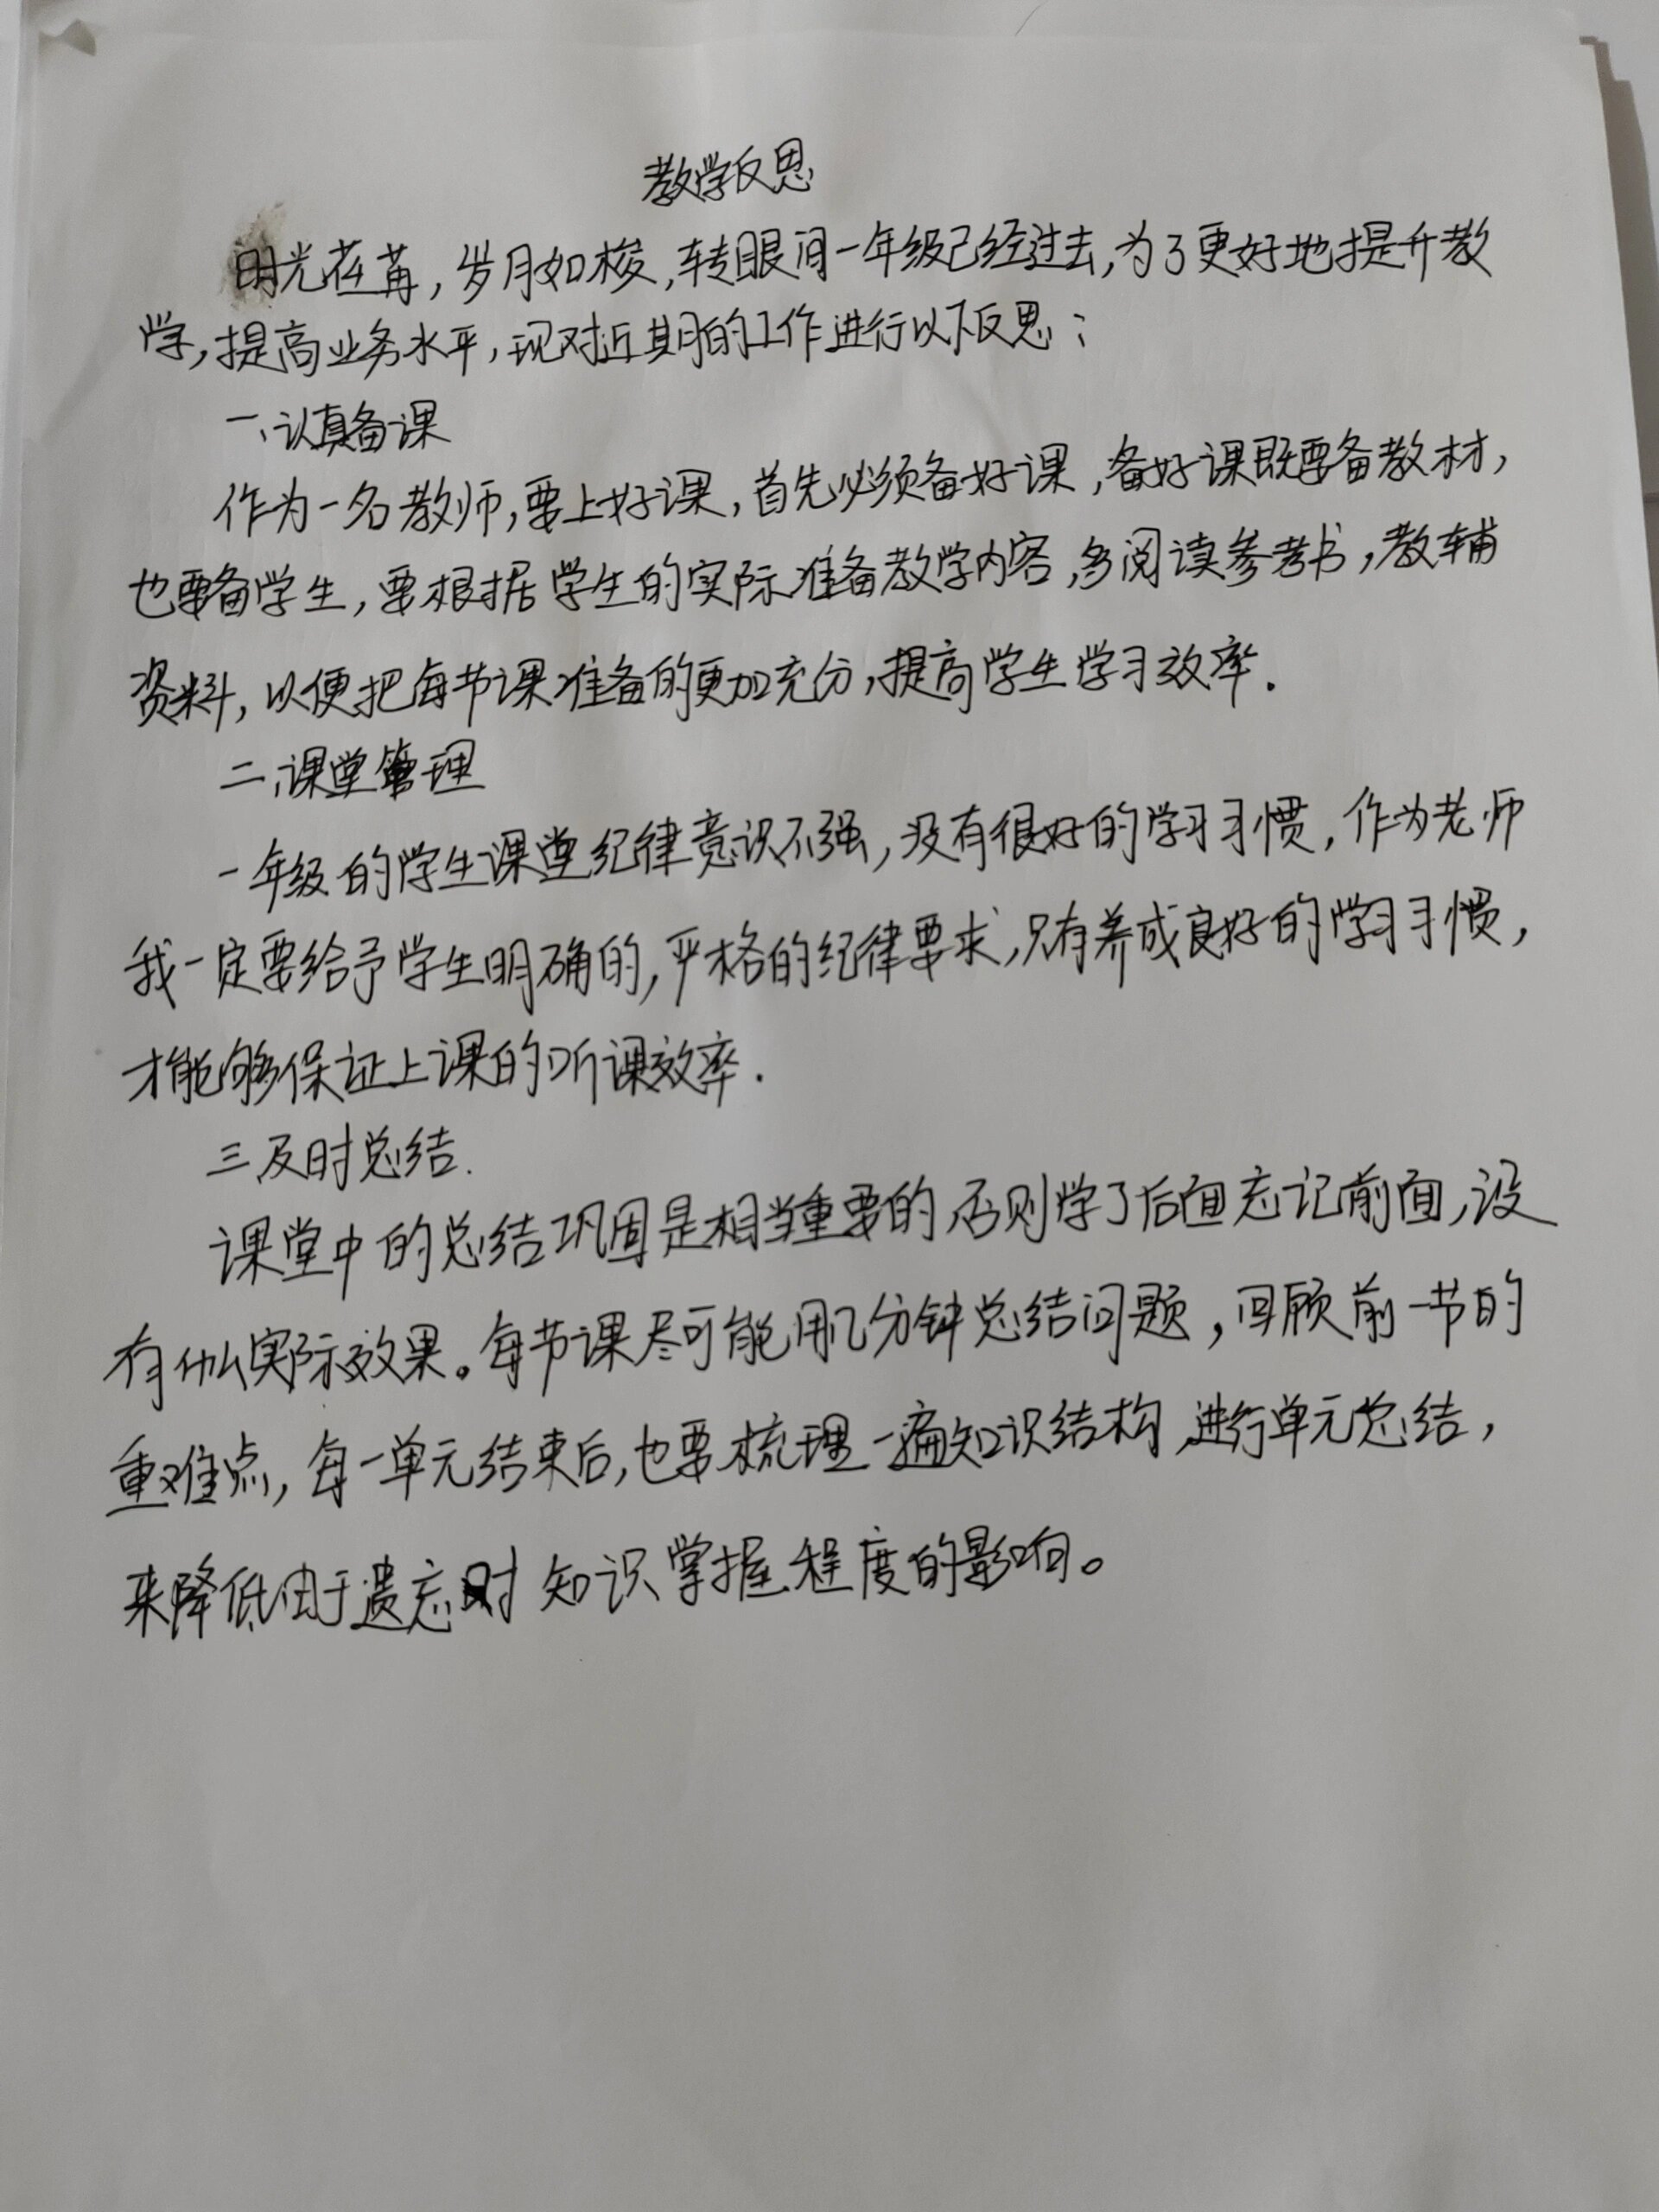 教学反思
时光荏苒，岁月如梭，转眼间一年级已经过去，为了更好地提升教
学，提高业务水平，现对近期的工作进行以下反思：
一、认真备课
作为一名教师，要上好课，首先必须备好课，备好课既要备教材，
也要备学生，要根据学生的实际准备教学内容，多阅读参考书，教辅
资料，以便把每节课准备的更加充分，提高学生学习效率.
二、课堂管理
一年级的学生课堂纪律意识不强，没有很好的学习习惯，作为老师
我一定要给予学生明确的，严格的纪律要求，只有养成良好的学习习惯，
才能够保证上课的听课效率.
三、及时总结.
课堂中的总结巩固是相当重要的，否则学了后面忘记前面，没
有什么实际效果。每节课尽可能用几分钟总结问题，回顾前一节的
重难点，每一单元结束后，也要梳理一遍知识结构，进行单元总结，
来降低由于遗忘对知识掌握程度的影响。